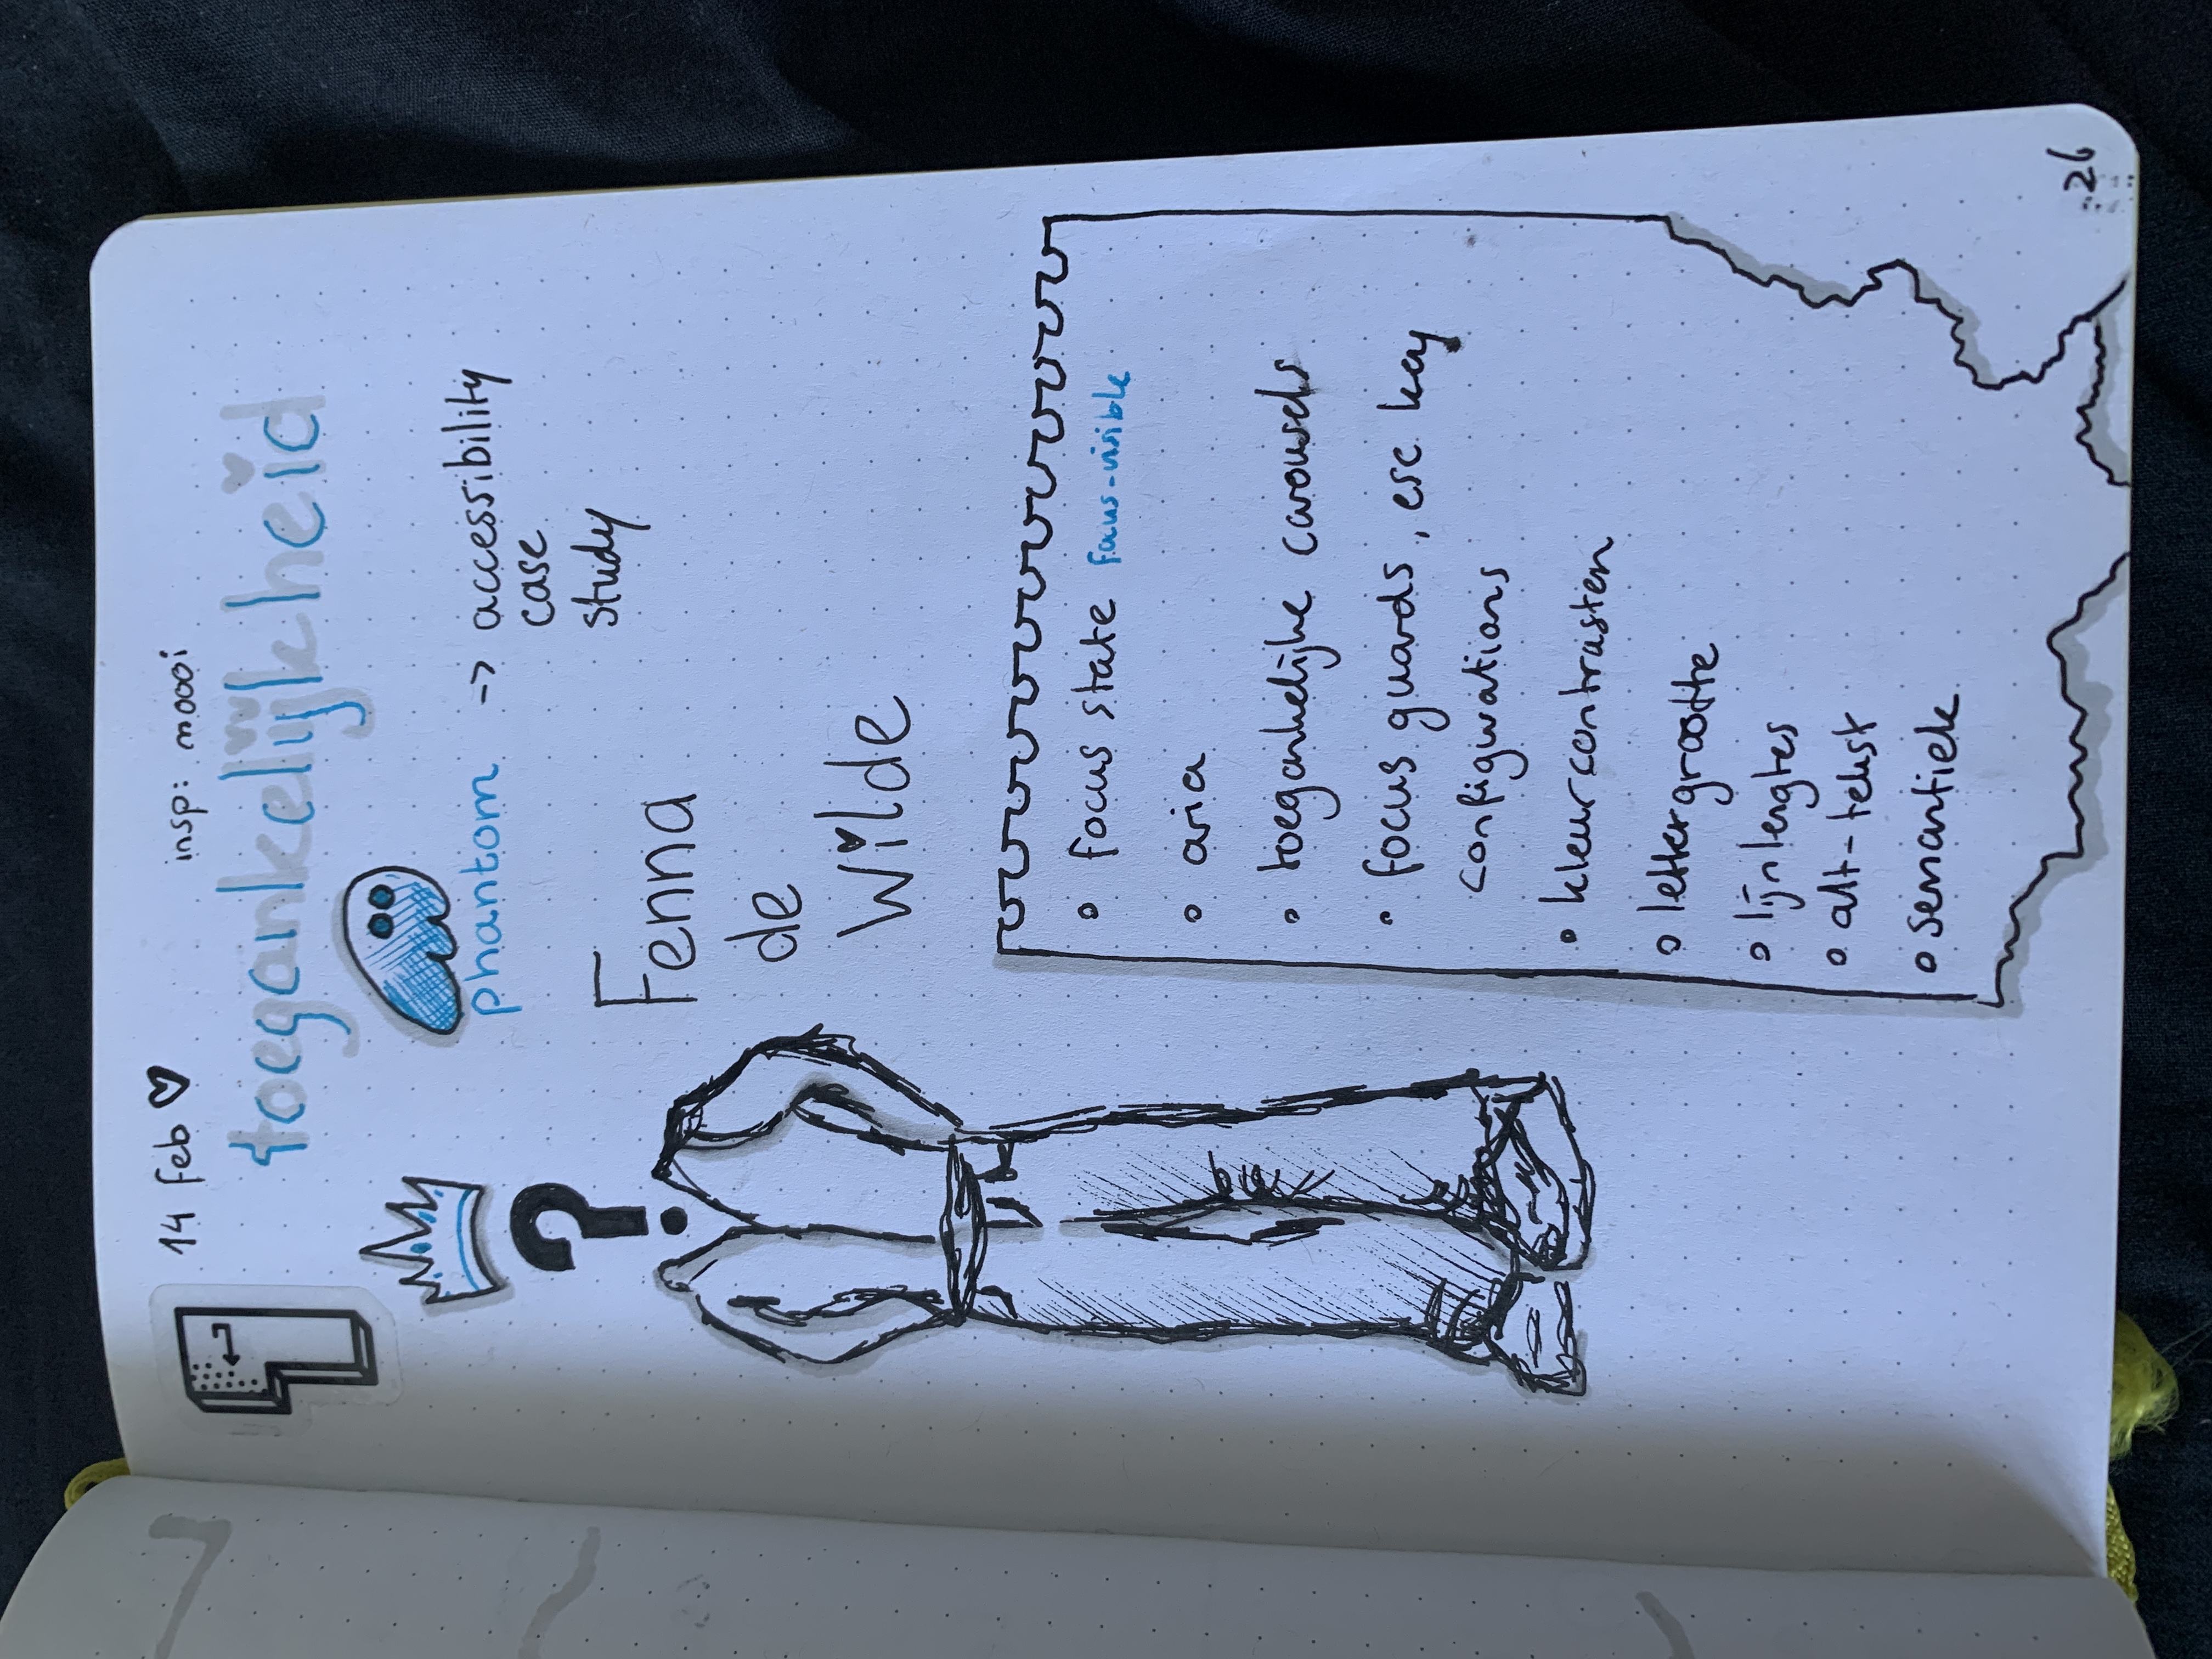 14 feb ♥ insp: moooi
toegankelijkheid
phantom -> accessibility
case
study
Fenna
de
Wilde
focus state focus-visible
aria
toegankelijke carousels
focus guards, esc key
configurations
kleurcontrasten
lettergrootte
lijnlengtes
alt-tekst
semantiek
26